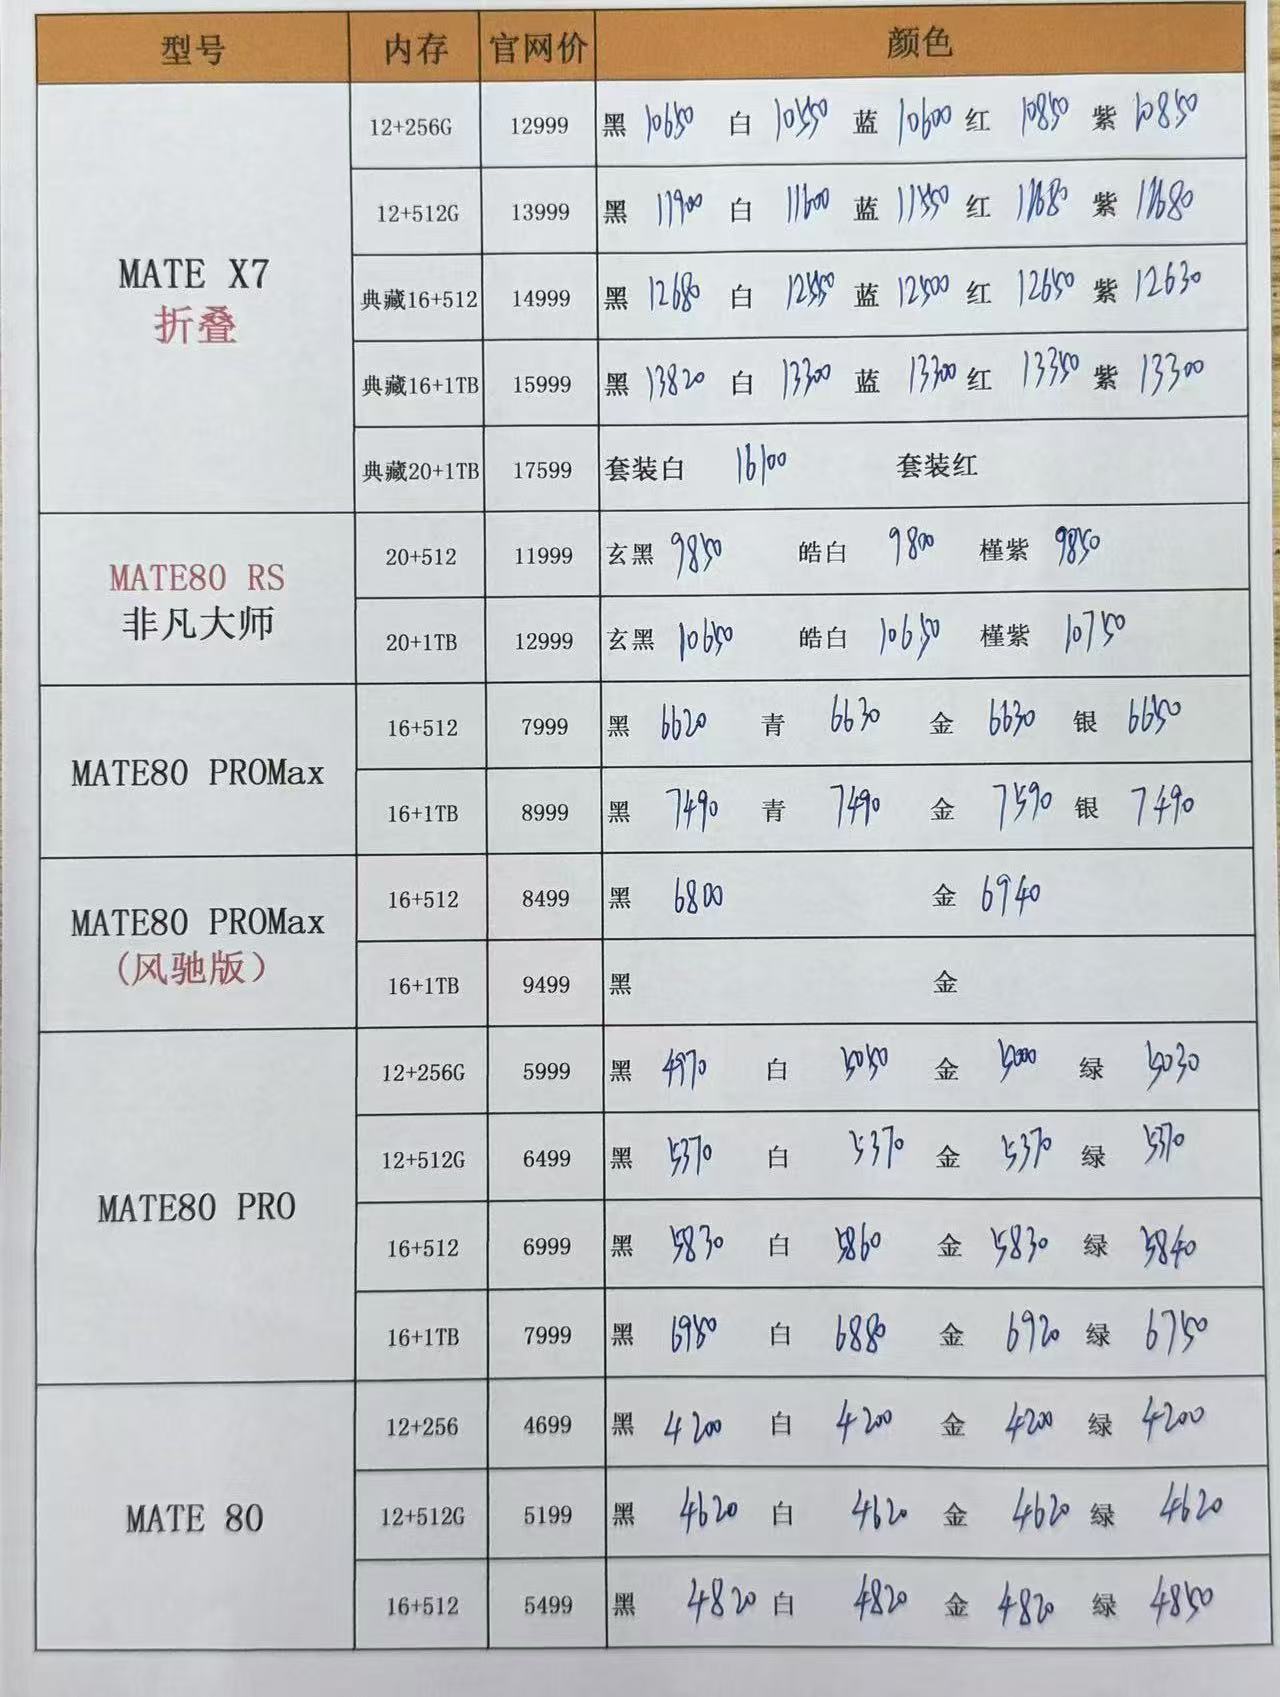 型号 内存 官网价 颜色
MATE X7
折叠
12+256G 12999 黑 10650 白 10550 蓝 10600 红 10850 紫 10850
12+512G 13999 黑 11900 白 11600 蓝 11550 红 11680 紫 11680
典藏16+512 14999 黑 12680 白 12550 蓝 12500 红 12650 紫 12630
典藏16+1TB 15999 黑 13820 白 13300 蓝 13300 红 13350 紫 13300
典藏20+1TB 17599 套装白 16100 套装红
MATE80 RS
非凡大师
20+512 11999 玄黑 9850 皓白 9800 槿紫 9850
20+1TB 12999 玄黑 10650 皓白 10650 槿紫 10750
MATE80 PROMax
16+512 7999 黑 6620 青 6630 金 6630 银 6650
16+1TB 8999 黑 7490 青 7490 金 7590 银 7490
MATE80 PROMax
(风驰版)
16+512 8499 黑 6800 金 6940
16+1TB 9499 黑 金
MATE80 PRO
12+256G 5999 黑 4970 白 5050 金 5000 绿 5030
12+512G 6499 黑 5370 白 5370 金 5370 绿 5370
16+512 6999 黑 5830 白 5860 金 5830 绿 5840
16+1TB 7999 黑 6950 白 6880 金 6920 绿 6750
MATE 80
12+256 4699 黑 4200 白 4200 金 4200 绿 4200
12+512G 5199 黑 4620 白 4620 金 4620 绿 4620
16+512 5499 黑 4820 白 4820 金 4820 绿 4850